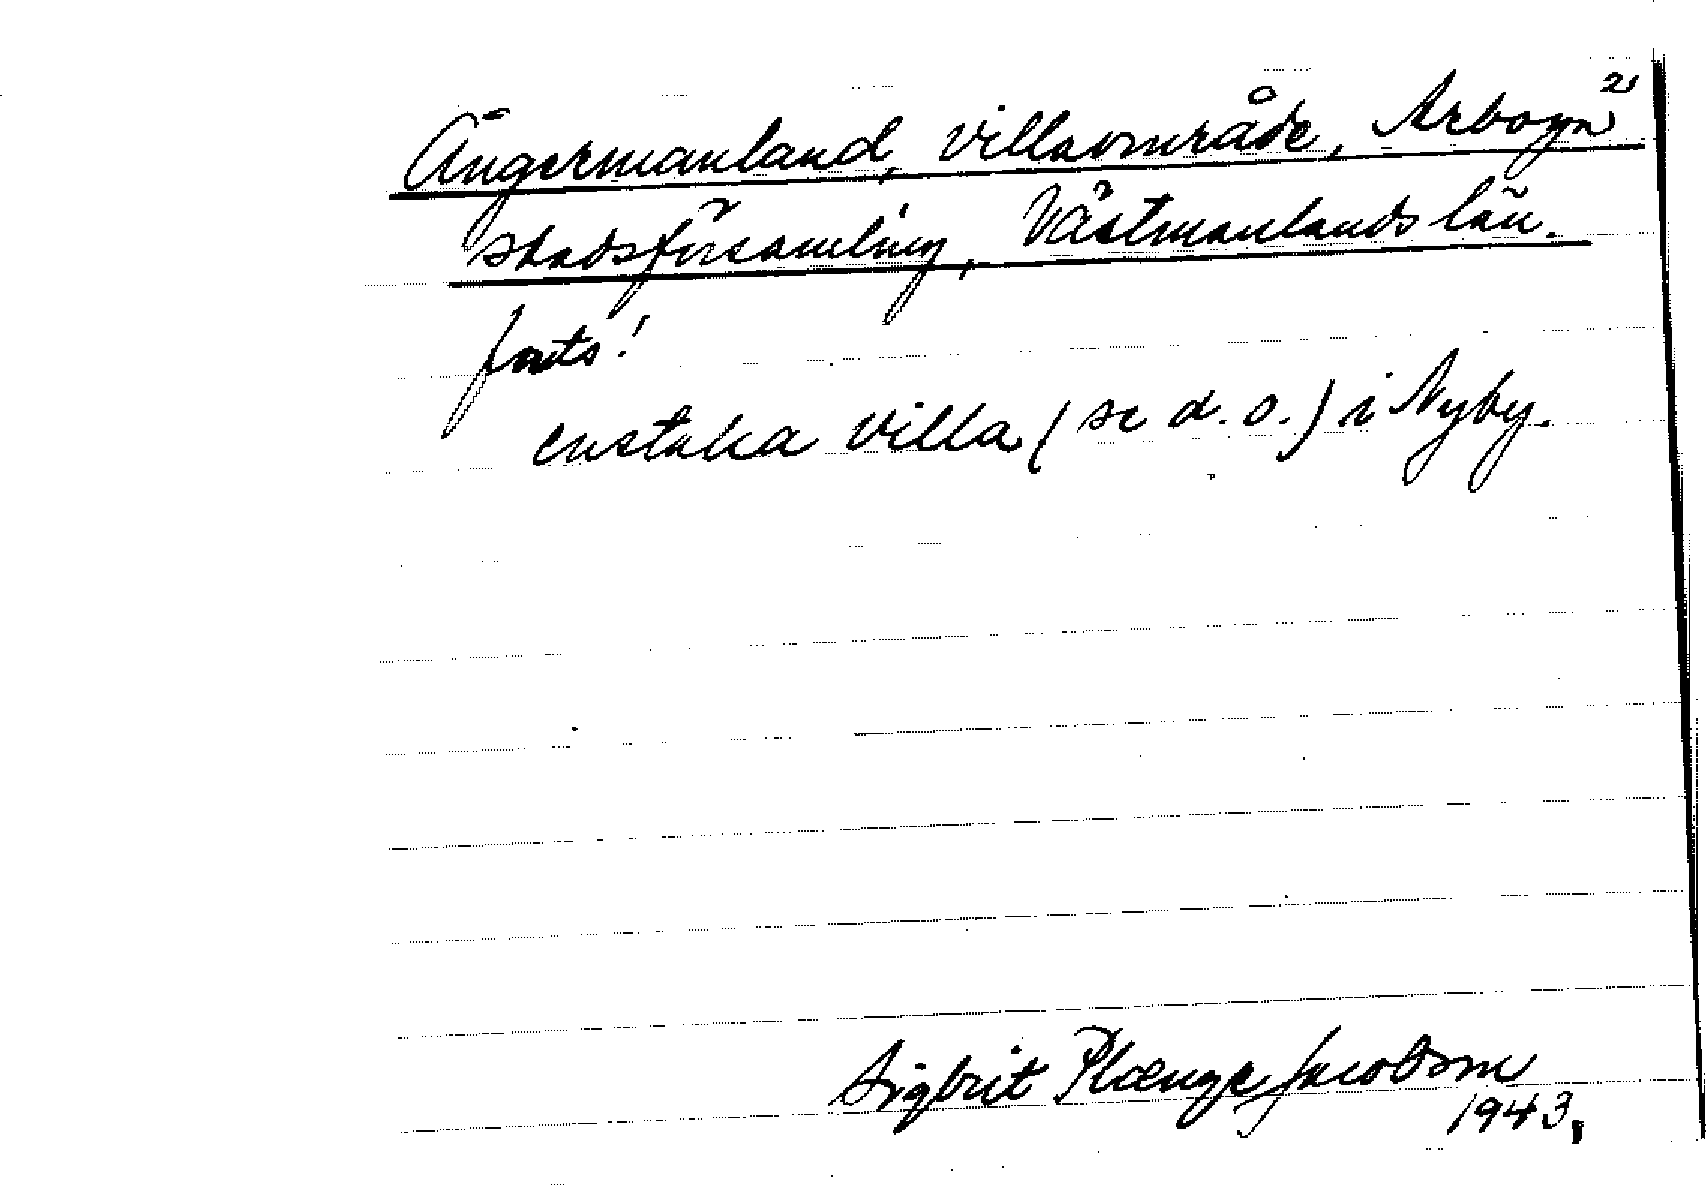 2)
Ångermanland, villaområde, Arboga
stadsförsamling, Västmanlands län.
forts!
enstaka villa (se d. o.) i Nyby.
Sigbrit Plænge Jacobson
1943.